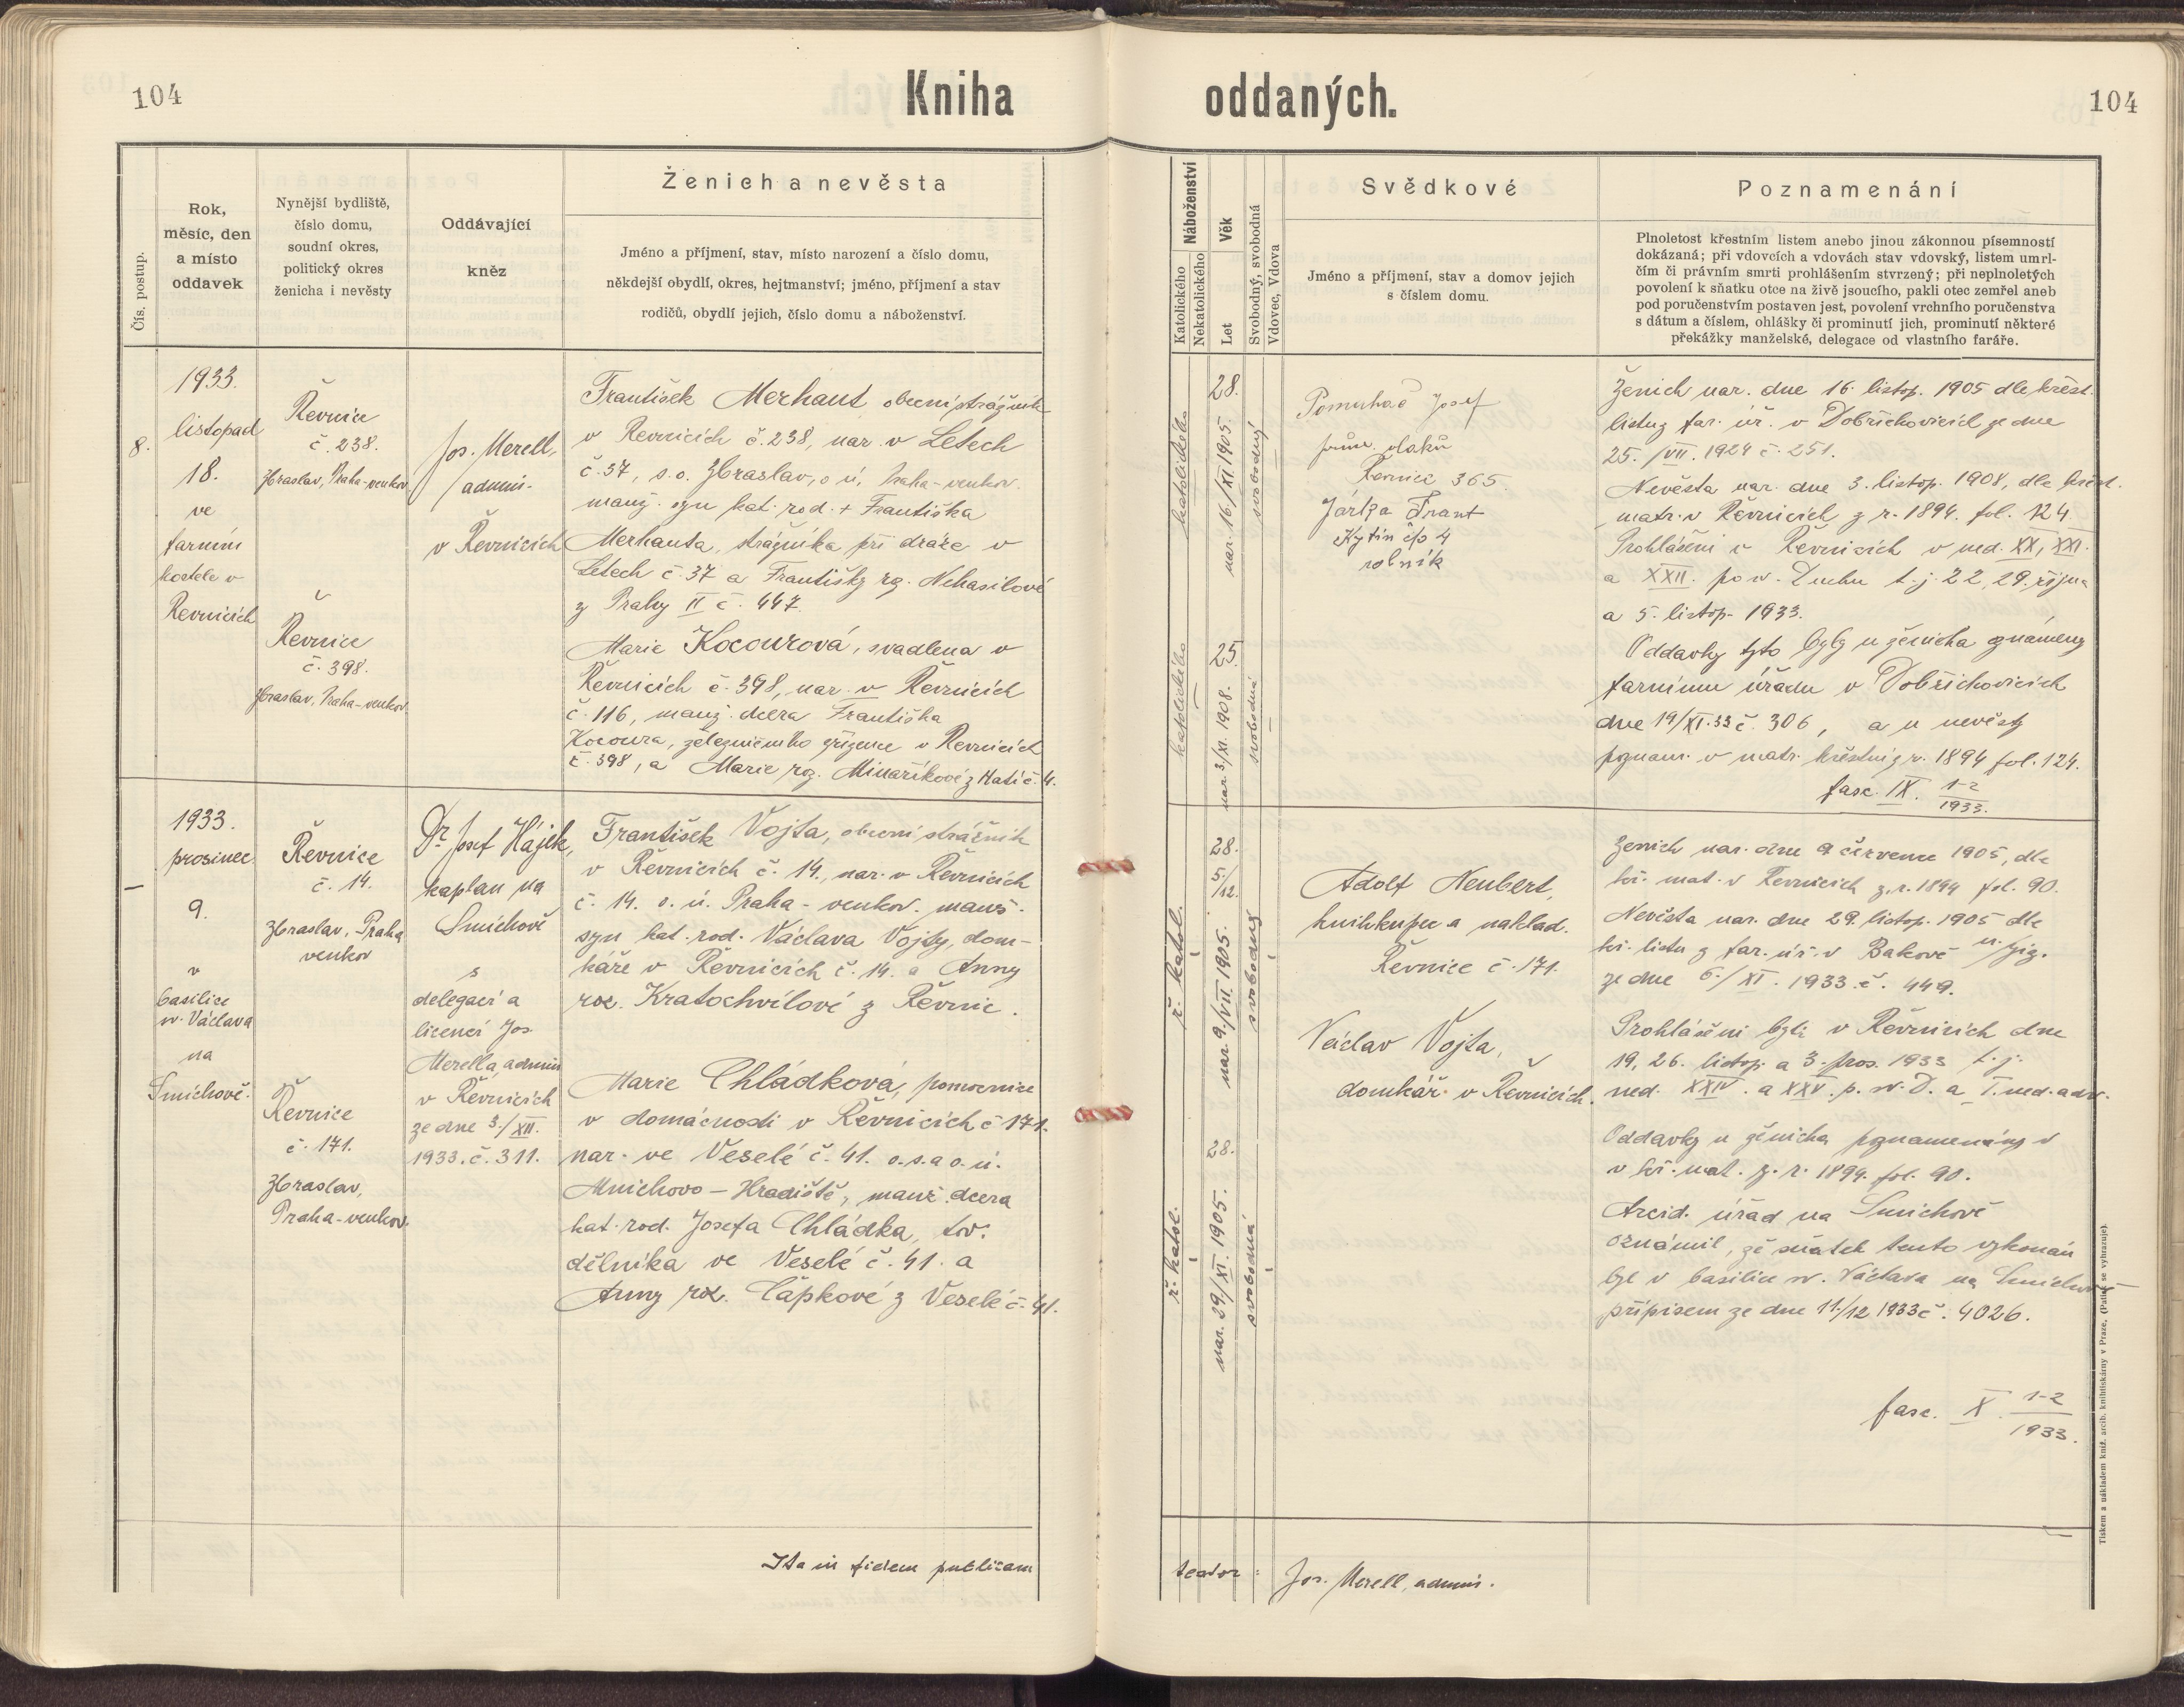 104
Kniha
oddaných.
104
Čís. postup.
Rok,
měsíc, den
a místo
oddavek
Nynější bydliště,
číslo domu,
soudní okres,
politický okres
ženicha i nevěsty
Oddávající
kněz
Ženich a nevěsta
Jméno a příjmení, stav, místo narození a číslo domu,
někdejší obydlí, okres, hejtmanství; jméno, příjmení a stav
rodičů, obydlí jejich, číslo domu a náboženství.
Náboženství
Katolického
Nekatolického
Věk
Let
Svobodný, svobodná
Vdovec, Vdova
Svědkové
Jméno a příjmení, stav a domov jejich
s číslem domu.
Poznamenání
Plnoletost křestním listem anebo jinou zákonnou písemností
dokázaná; při vdovcích a vdovách stav vdovský, listem umrl-
čím či právním smrti prohlášením stvrzený; při neplnoletých
povolení k sňatku otce na živě jsoucího, pakli otec zemřel aneb
pod poručenstvím postaven jest, povolení vrchního poručenstva
s dátum a číslem, ohlášky či prominutí jich, prominutí některé
překážky manželské, delegace od vlastního faráře.
8.
1933.
listopad
18.
ve
farním
kostele v
Řevnicích
Řevnice
č. 238.
Zbraslav, Praha-venkov
Řevnice
č. 398.
Zbraslav, Praha-venkov
Jos. Merell,
admin.
v Řevnicích
František Merhaut, obecní strážník
v Řevnicích č. 238, nar. v Letech
č. 37, s. o. Zbraslav, o ú. Praha-venkov.
manž. syn kat. rod. + Františka
Merhauta, strážníka při dráze v
Letech č. 37 a Františky rz. Nehasilové
z Prahy II č. 447.
Marie Kocourová, švadlena v
Řevnicích č. 398, nar. v Řevnicích
č. 116, manž. dcera Františka
Kocoura, železničního zřízence v Řevnicích
č. 398, a Marie rz. Minaříkové z Hatí č. 4.
katolického
28.
nar. 16./XI. 1905.
svobodný
katolického
25.
nar. 3/XI. 1908.
svobodná
Pomuhač Josef
prův. vlaků
Řevnice 365.
Jarka Frant
Kytín čp 4
rolník
Ženich nar. dne 16. listop. 1905 dle křest.
listu z far. úř. v Dobřichovicích ze dne
25. /VII. 1924 č. 251.
Nevěsta nar. dne 3. listop. 1908, dle křest.
matr. v Řevnicích z r. 1894. fol. 124
Prohlášeni v Řevnicích v ned. XX, XXI.
a XXII. po sv. Duchu t. j. 22, 29. října
a 5. listop. 1933.
Oddavky tyto byly u ženicha oznámeny
farnímu úřadu v Dobřichovicích
dne 19/XI. 33 č. 306, a u nevěsty
poznam. v matr. křestní z r. 1894 fol. 124.
fasc. IX. 1-2
1933.
–
1933.
prosinec
9.
v
basilice
sv. Václava
na
Smíchově.
Řevnice
č. 14.
Zbraslav, Praha
venkov
Řevnice
č. 171.
Zbraslav,
Praha-venkov.
Dr. Josef Hájek,
kaplan na
Smíchově
s
delegací a
licencí Jos.
Merella, admin
v Řevnicích
ze dne 3./XII.
1933. č. 311.
František Vojta, obecní strážník
v Řevnicích č. 14., nar. v Řevnicích
č. 14. o. ú. Praha-venkov. manž.
syn kat. rod. Václava Vojty, dom-
káře v Řevnicích č. 14. a Anny
roz. Kratochvílové z Řevnic.
Marie Chládková, pomocnice
v domácnosti v Řevnicích č 171.
nar. ve Veselé č. 41. o. s. a o. ú.
Mnichovo-Hradiště, manž. dcera
kat. rod. Josefa Chládka, tov.
dělníka ve Veselé č. 41. a
Anny roz. Čápkové z Veselé č. 41.
ř. katol.
28.
5/12.
nar. 9./VII. 1905.
svobodný
ř. katol.
28.
nar. 29/XI. 1905.
svobodná
Adolf Neubert,
knihkupec a naklad.
Řevnice č. 171.
Václav Vojta,
domkář v Řevnicích.
Ženich nar. dne 9 července 1905, dle
kř. mat. v Řevnicích z. r. 1894 fol. 90.
Nevěsta nar. dne 29. listop. 1905 dle
kř. listu z far. úř. v Bakově n. Jiz.
ze dne 6./XI. 1933. č. 449.
Prohlášeni byli v Řevnicích dne
19, 26. listop. a 3. pros. 1933 t. j.
ned. XXIV. a XXV. p. sv. D. a I. ned. adv.
Oddavky u ženicha poznamenány v
v kř. mat. z. r. 1894. fol. 90.
Arcid. úřad na Smíchově
oznámil, že sňatek tento vykonán
byl v basilice sv. Václava na Smíchově
přípisem ze dne 11./12 1933 č. 4026.
fasc. X. 1-2
1933.
Ita in fidem publicam
testor: Jos. Merell, admin.
Tiskem a nákladem kníž. arcib. knihtiskárny v Praze. (Patisk se vyhrazuje).